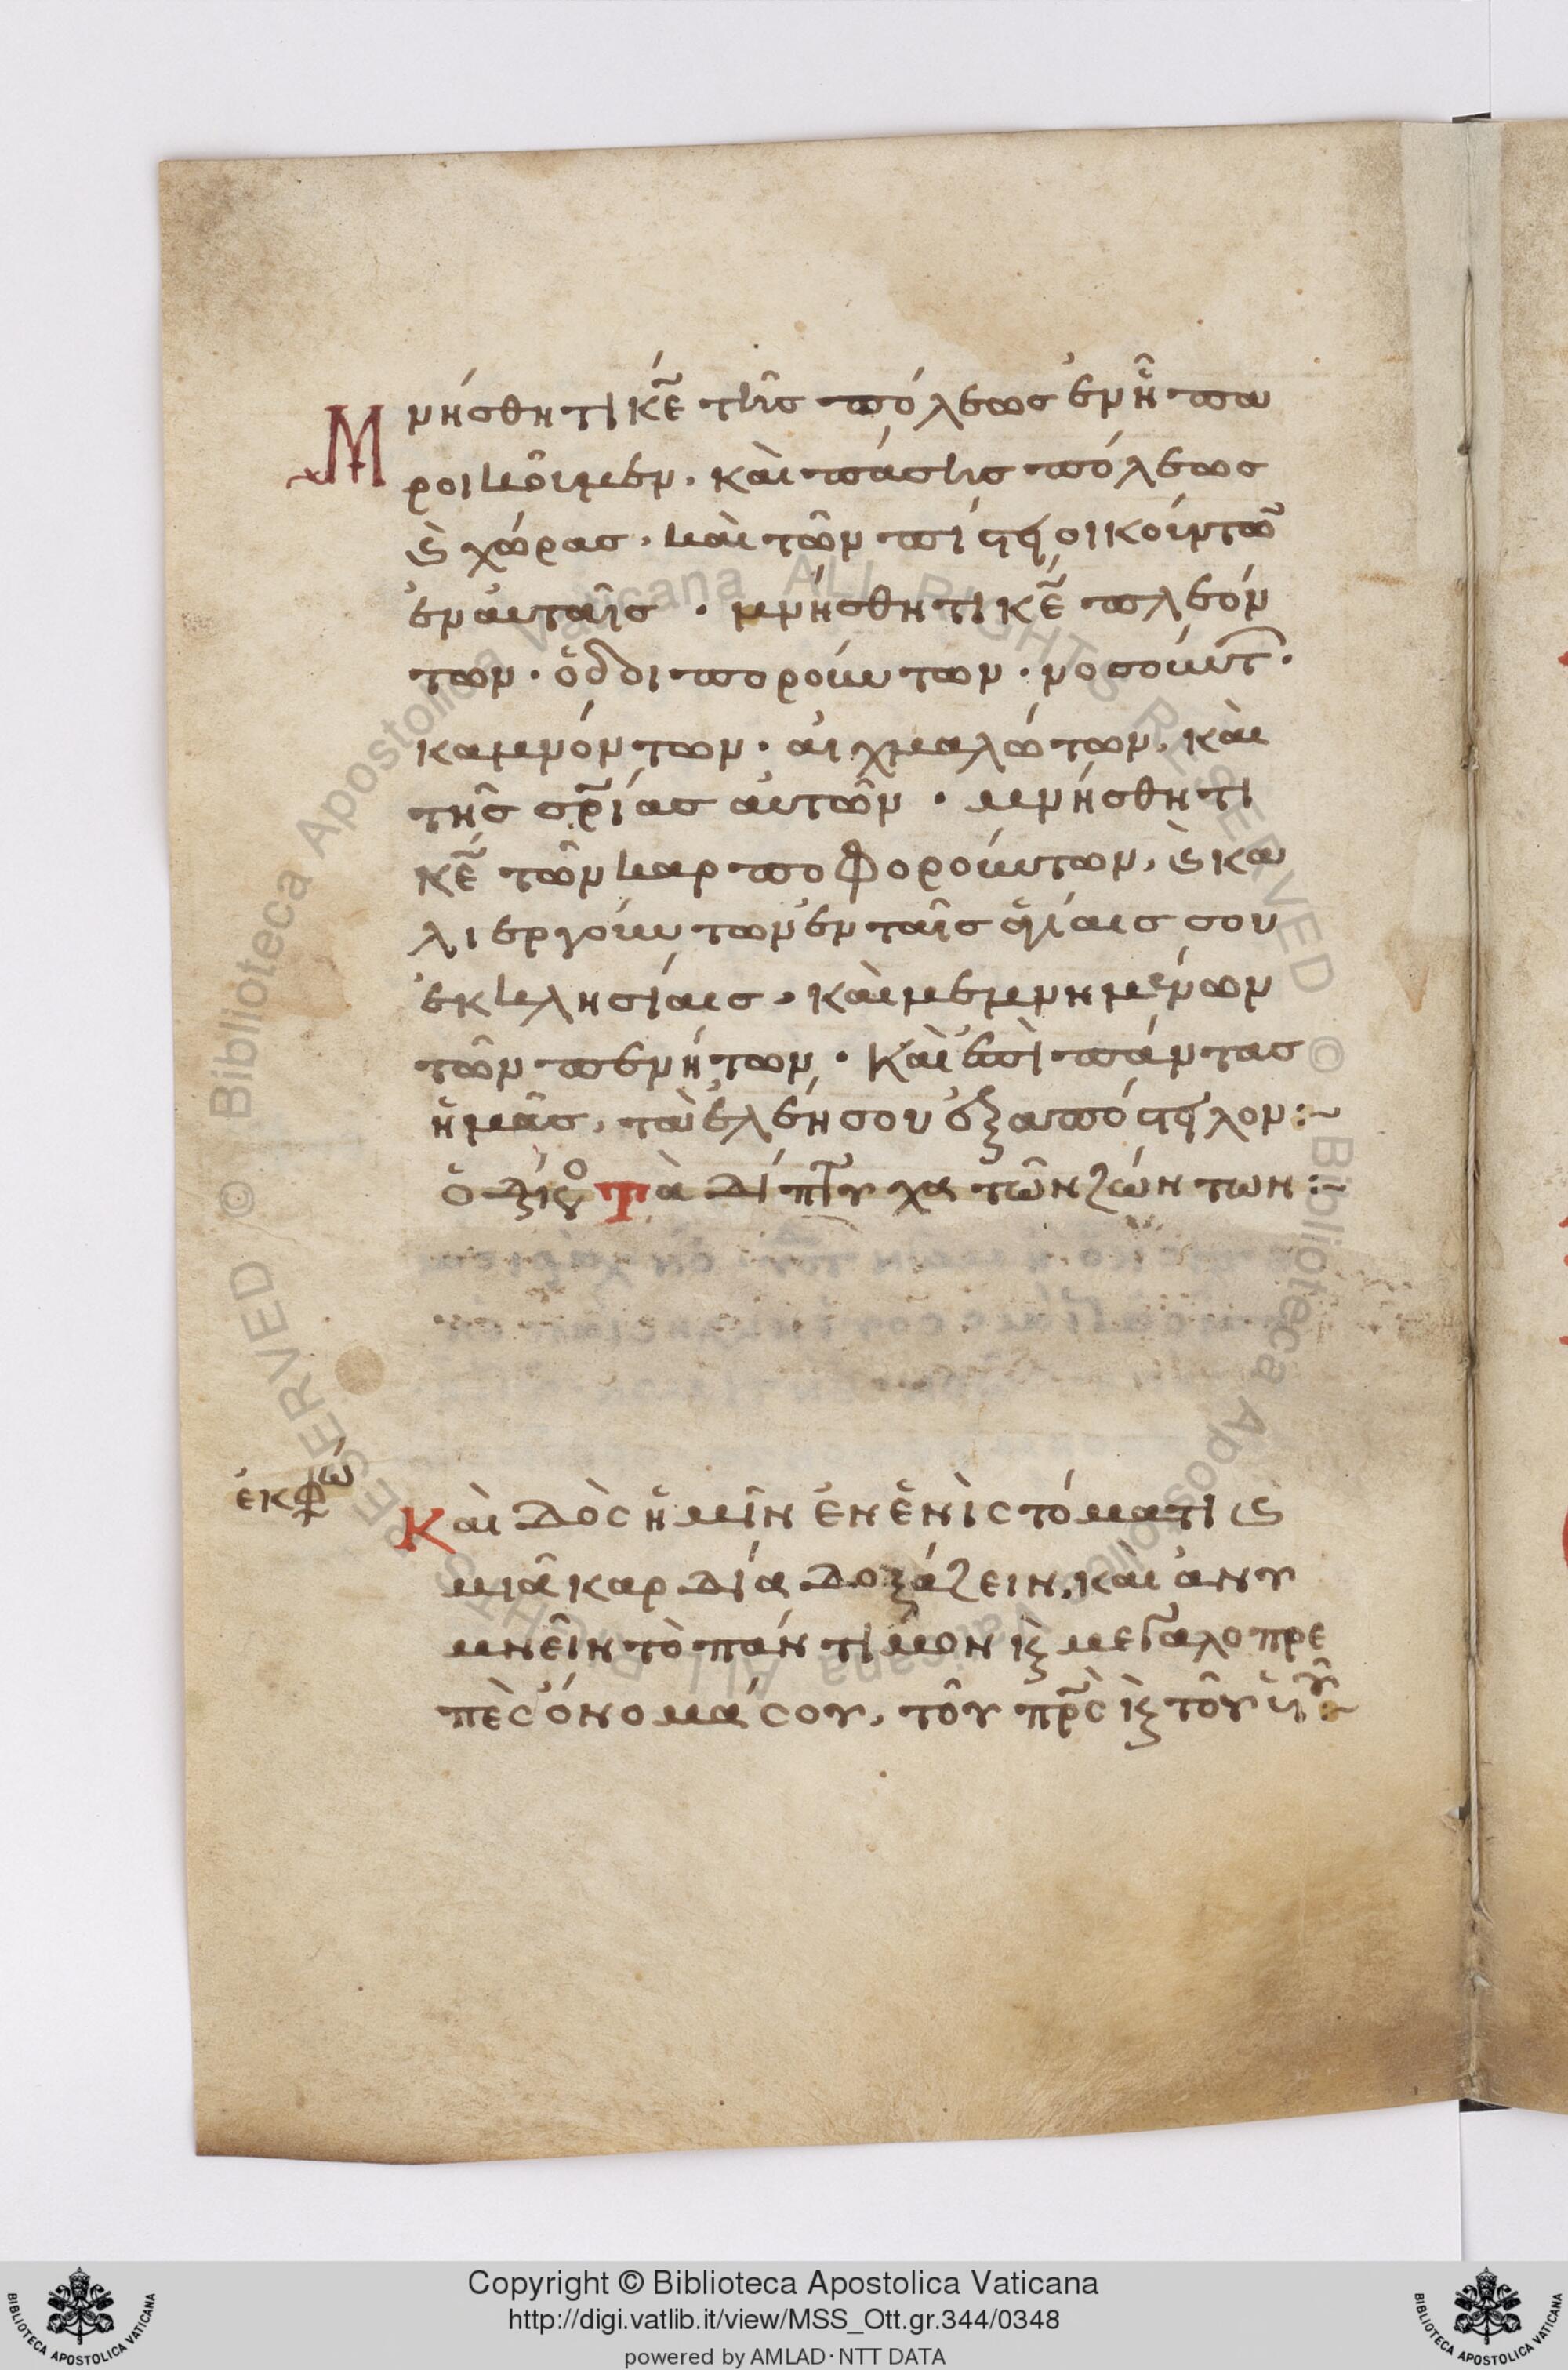 Μνήσθητι κ̅ε̅ τῆς πόλεως ἐν ἧ πα
ροικοῦμεν. καὶ πάσης πόλεως
ϛ̀ χώρας. καὶ τῶν πίστει οἰκούντω̅
ἐν αὐταῖς · μνήσθητι κ̅ε̅ πλεόν
των · ὁδοιπορούντων · νοσούντ.
καμνόντων · αἰχμαλώτων. καὶ
τῆς σ̅ρ̅ίας αὐτῶν · μνήσθητι
κ̅ε̅ τῶν καρποφορούντων, ϛ̀ κα
λιεργούντων ἐν ταῖς ἁγίαις σου
ἐκκλησίαις · καὶ μεμνημένων
τῶν πενήτων · Καὶ ἐπὶ πάντας
ἡμᾶς, τὰ ἐλέη σου ἐξαπόστειλον :~
Τὰ δίπτυχα τῶν ζώντων :~
ἐκφώ
Καὶ δὸς ἡμῖν ἐν ἑνὶ στόματι ϛ̀
μιᾶ καρδία δοξάζειν, καὶ ἀνυ
μνεῖν τὸ πάντιμον κ̀ μεγαλοπρε
πὲς ὄνομά σου, τοῦ π̅ρ̅ς κ̀ τοῦ υἱοῦ :~
Copyright © Biblioteca Apostolica Vaticana
http://digi.vatlib.it/view/MSS_Ott.gr.344/0348
powered by AMLAD·NTT DATA
BIBLIOTECA APOSTOLICA VATICANA
BIBLIOTECA APOSTOLICA VATICANA
© Biblioteca Apostolica Vaticana ALL RIGHTS RESERVED
© Biblioteca Apostolica Vaticana ALL RIGHTS RESERVED